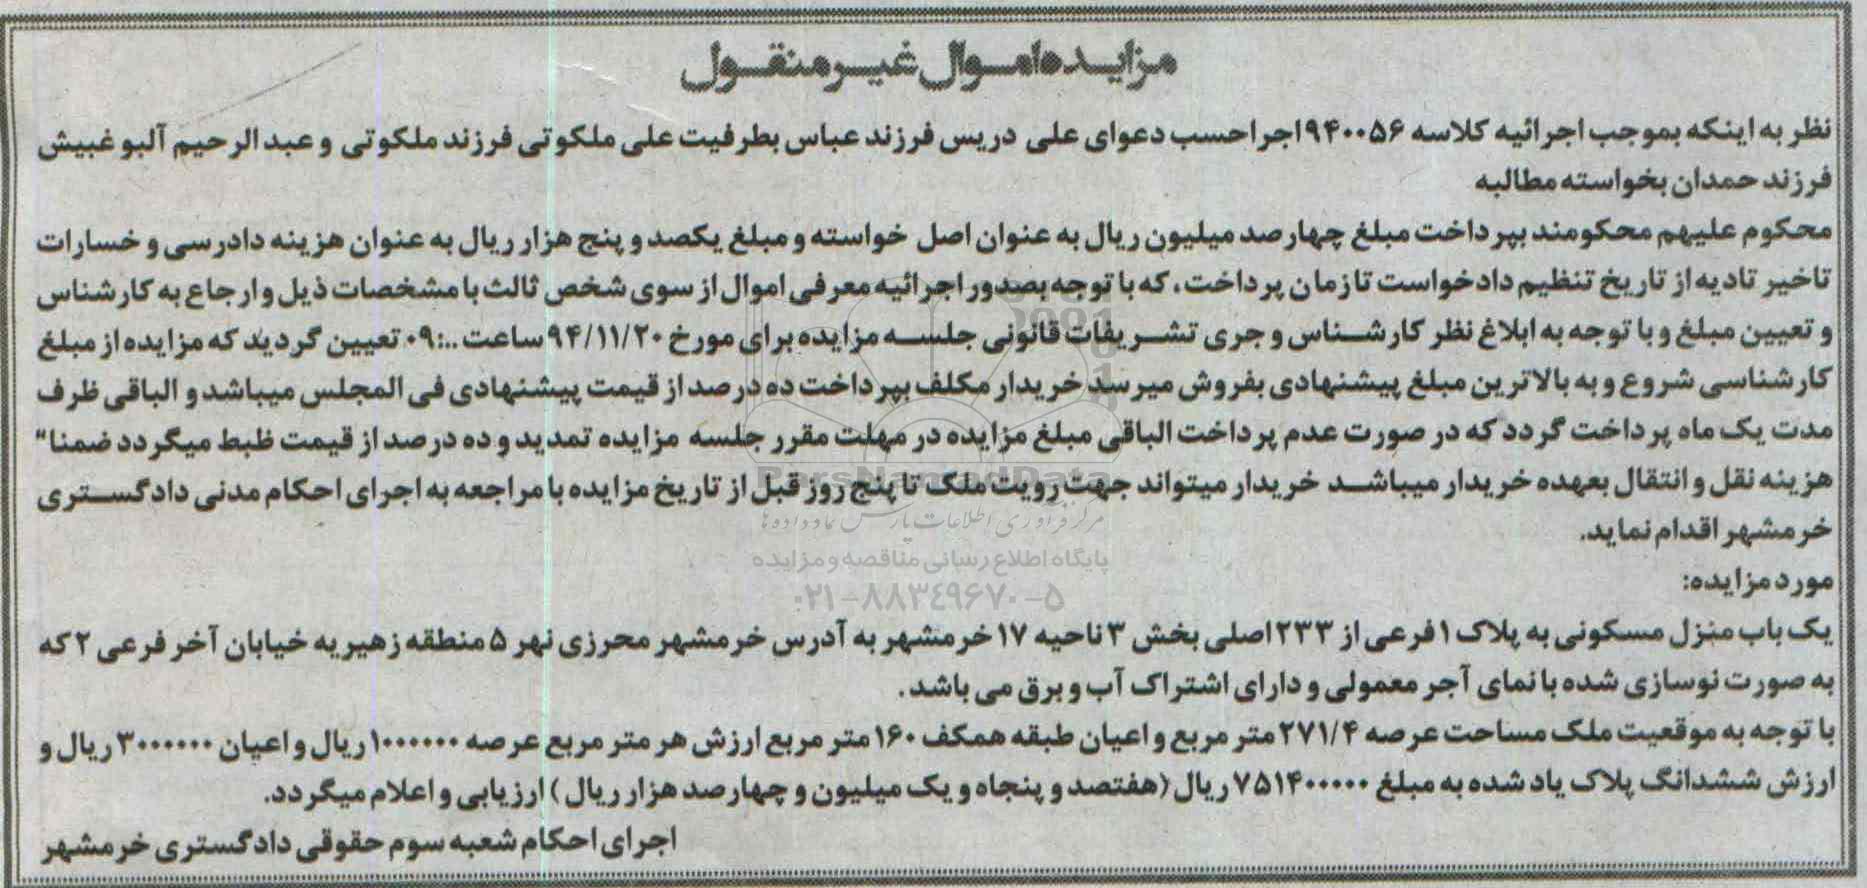 مزایده اموال غیر منقول
نظر به اینکه بموجب اجرائیه کلاسه ۹۴۰۰۵۶ اجرا حسب دعوای علی دریس فرزند عباس بطرفیت علی ملکوتی فرزند ملکوتی و عبدالرحیم آلبوغبیش
فرزند حمدان بخواسته مطالبه
محکوم علیهم محکومند بپرداخت مبلغ چهارصد میلیون ریال به عنوان اصل خواسته و مبلغ یکصد و پنج هزار ریال به عنوان هزینه دادرسی و خسارات
تاخیر تادیه از تاریخ تنظیم دادخواست تا زمان پرداخت، که با توجه بصدور اجرائیه معرفی اموال از سوی شخص ثالث با مشخصات ذیل و ارجاع به کارشناس
و تعیین مبلغ و با توجه به ابلاغ نظر کارشناس و جری تشریفات قانونی جلسه مزایده برای مورخ ۹۴/۱۱/۲۰ ساعت ۰۹:۰۰ تعیین گردید که مزایده از مبلغ
کارشناسی شروع و به بالاترین مبلغ پیشنهادی بفروش میرسد خریدار مکلف بپرداخت ده درصد از قیمت پیشنهادی فی المجلس میباشد و الباقی ظرف
مدت یک ماه پرداخت گردد که در صورت عدم پرداخت الباقی مبلغ مزایده در مهلت مقرر جلسه مزایده تمدید و ده درصد از قیمت ظبط میگردد ضمنا"
هزینه نقل و انتقال بعهده خریدار میباشد خریدار میتواند جهت رویت ملک تا پنج روز قبل از تاریخ مزایده با مراجعه به اجرای احکام مدنی دادگستری
خرمشهر اقدام نماید.
مورد مزایده:
یک باب منزل مسکونی به پلاک ۱ فرعی از ۲۳۳ اصلی بخش ۳ ناحیه ۱۷ خرمشهر به آدرس خرمشهر محرزی نهر ۵ منطقه زهیریه خیابان آخر فرعی ۲ که
به صورت نوسازی شده با نمای آجر معمولی و دارای اشتراک آب و برق می باشد.
با توجه به موقعیت ملک مساحت عرصه ۲۷۱/۴ متر مربع و اعیان طبقه همکف ۱۶۰ متر مربع ارزش هر متر مربع عرصه ۱۰۰۰۰۰۰ ریال و اعیان ۳۰۰۰۰۰۰ ریال و
ارزش ششدانگ پلاک یاد شده به مبلغ ۷۵۱۴۰۰۰۰۰ ریال (هفتصد و پنجاه و یک میلیون و چهارصد هزار ریال) ارزیابی و اعلام میگردد.
اجرای احکام شعبه سوم حقوقی دادگستری خرمشهر
ParsNamadData
مرکز فرآوری اطلاعات پارس نماد داده ها
پایگاه اطلاع رسانی مناقصه و مزایده
۰۲۱-۸۸۳۴۹۶۷۰-۵